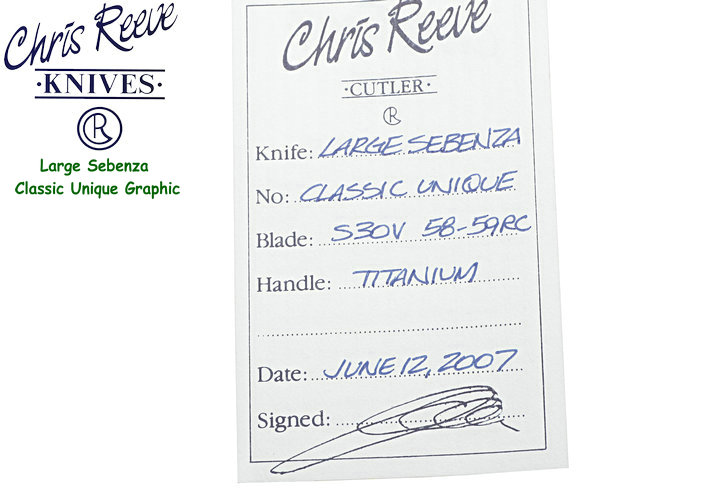 Chris Reeve
·KNIVES·
R
Large Sebenza
Classic Unique Graphic
Chris Reeve
·CUTLER·
R
Knife: LARGE SEBENZA
No: CLASSIC UNIQUE
Blade: S30V 58-59RC
Handle: TITANIUM
Date: JUNE 12, 2007
Signed: